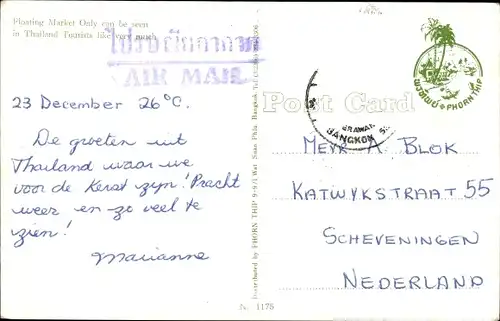 Floating Market Only can be seen
in Thailand Tourists like very much
ไปรษณีย์อากาศ
AIR MAIL
23 December 26°C.
De groeten uit
Thailand waar we
voor de Kerst zijn! Pracht
weer en zo veel te
zien!
Marianne
Distributed by PHORN THIP 9-9/1 Wat Suan Phlu Bangkok Tel.
№ 1175
Post Card
BANGKOK
PHORN THIP
MEVR A BLOK
KATWYKSTRAAT 55
SCHEVENINGEN
NEDERLAND